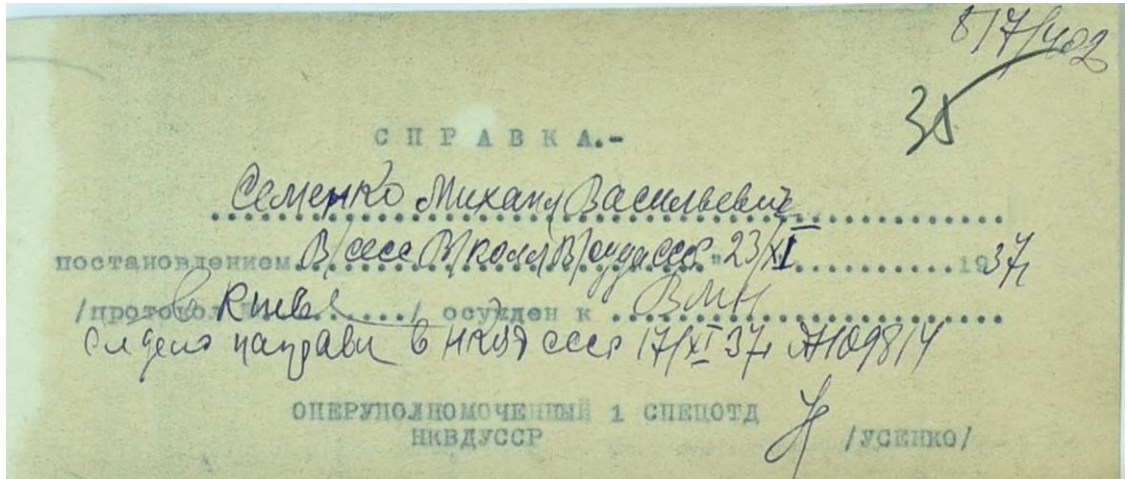 8/7/402
35
СПРАВКА.-
Семенко Михаил Васильевич
постановлением В/сесс В/колл В/суда ссср "23/XI 1937г
/протокол в Киеве / осужден к ВМН
Сл дело направл в НКВД ссср 17/XI 37г
ОПЕРУПОЛНОМОЧЕННЫЙ 1 СПЕЦОТД
НКВДУССР /УСЕНКО/